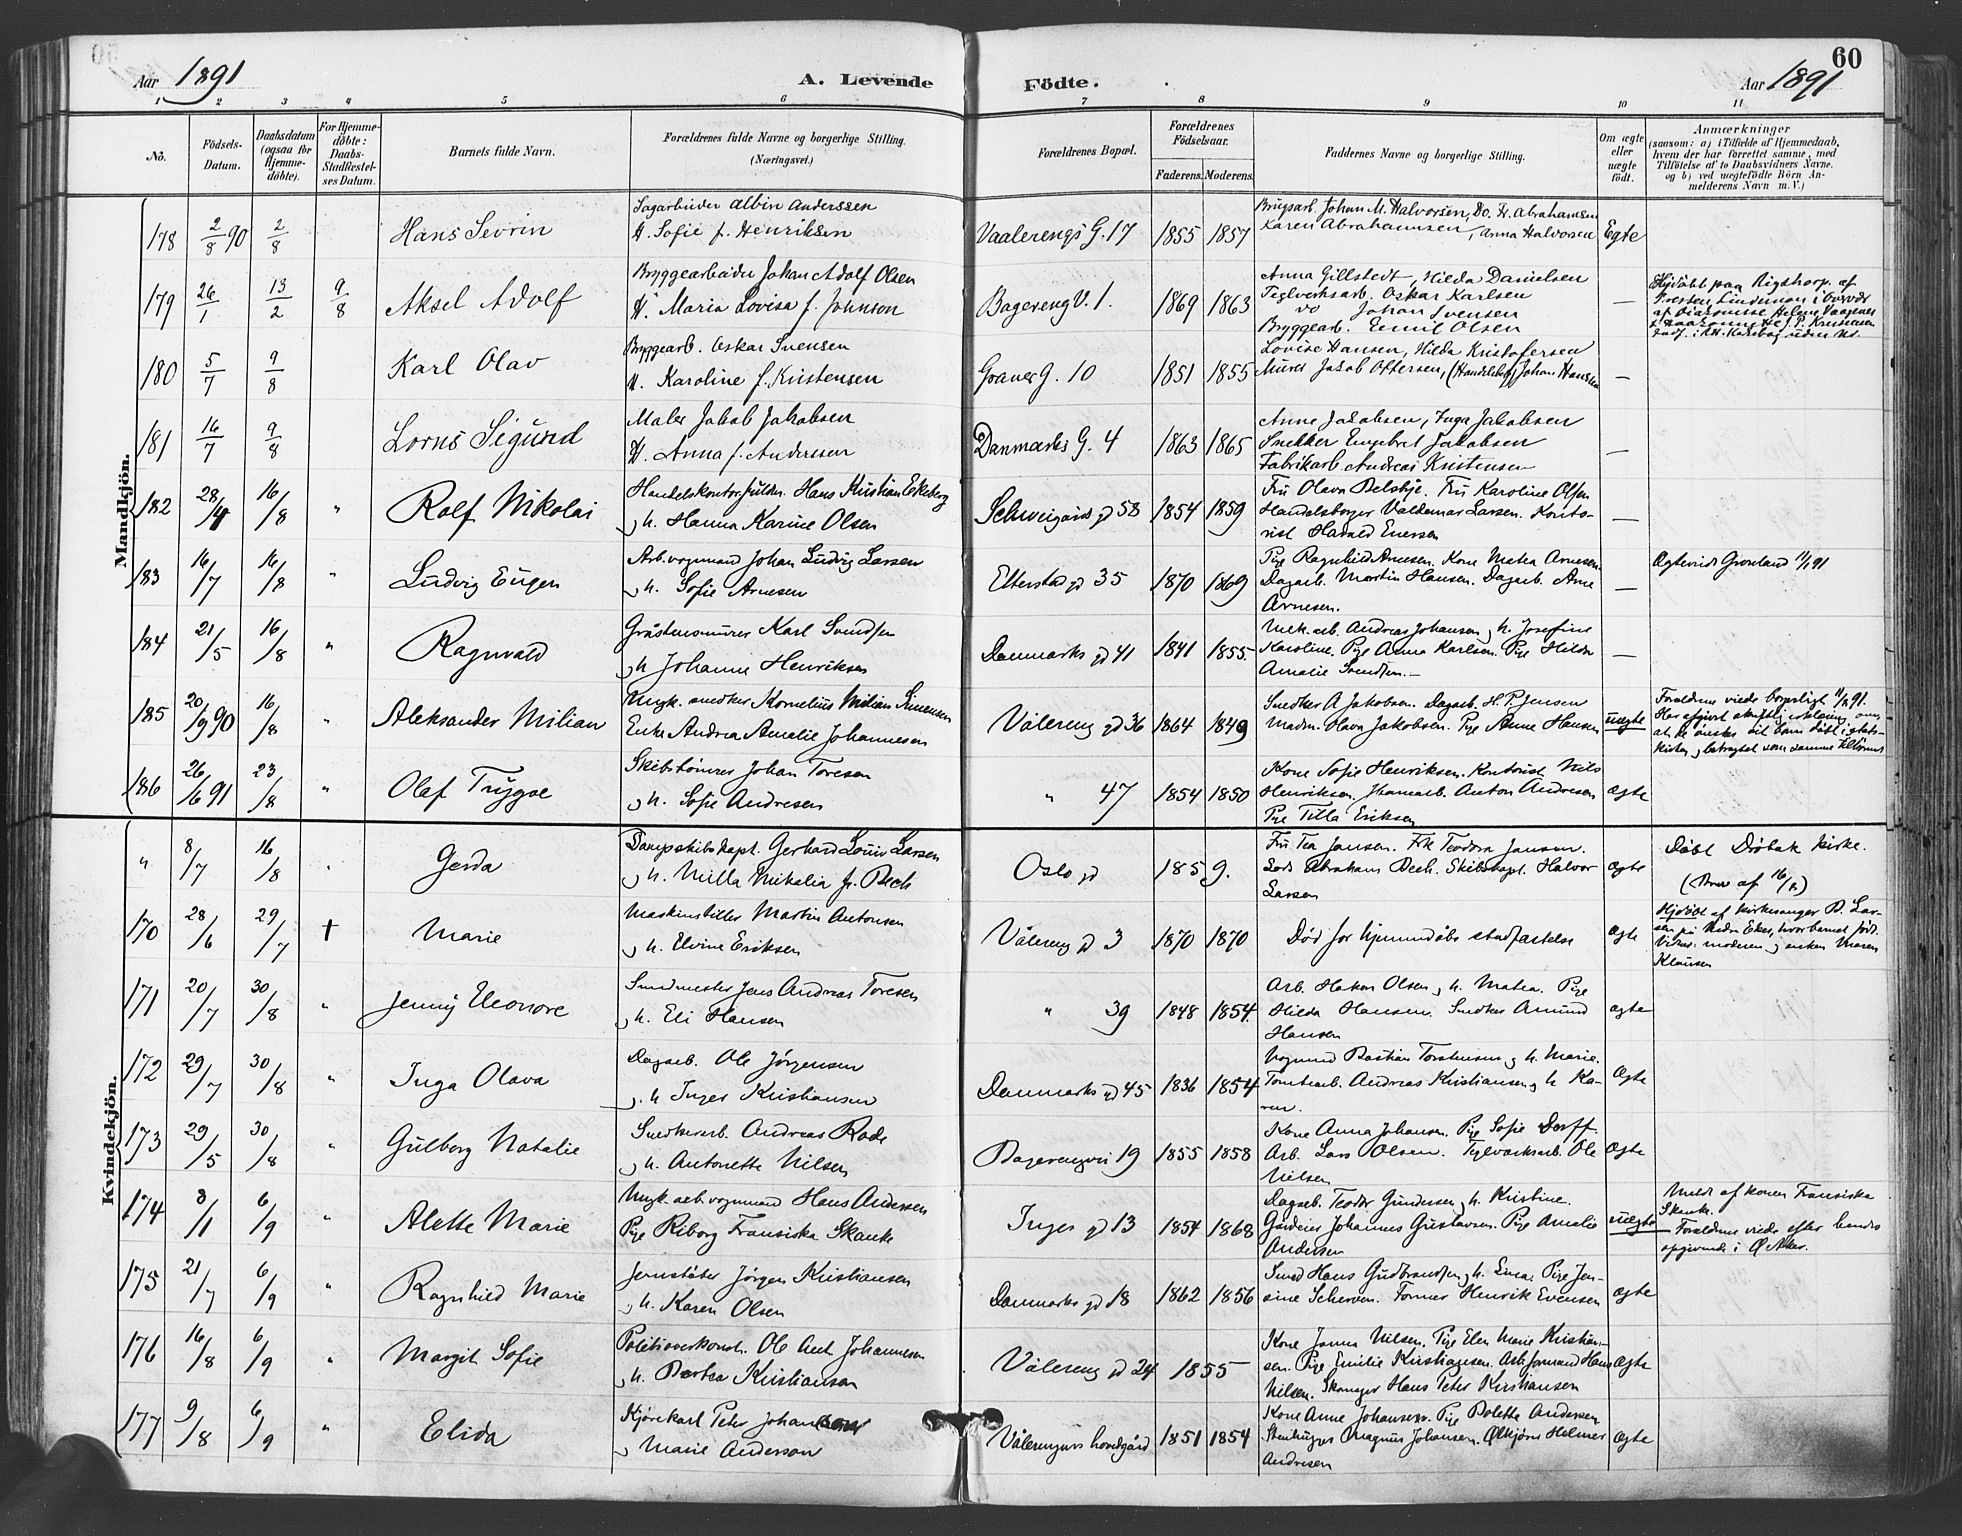 Aar 1891
A. Levende Födte.
60
Aar 1891
1 2 3 4 5 6 7 8 9 10 11
No.
Födsels-
Datum.
Daabsdatum
(ogsaa för
Hjemme-
döbte).
For Hjemme-
döbte:
Daabs-
Stadfæstel-
ses Datum.
Barnets fulde Navn.
Forældrenes fulde Navne og borgerlige Stilling.
(Næringsvei.)
Forældrenes Bopæl.
Forældrenes
Födselsaar.
Faderens. Moderens.
Faddernes Navne og borgerlige Stilling.
Om ægte
eller
uægte
født.
Anmærkninger
(saasom: a) i Tilfælde af Hjemmedaab,
hvem der har forrettet samme, med
Tilföielse af to Daabsvidners Navne.
og b) ved uægtefödte Börn An-
melderens Navn m. V.)
Mandkjön.
178 2/8 90 2/8 Hans Sevrin
Sagarbeider Albin Anderssen
H. Sofie f. Henriksen
Vaalerengs G. 17 1855 1857
Brugsarb. Johan M. Halvorsen, Do. Fr. Abrahamsen
Karen Abrahamsen, Anna Halvorsen
Egte
179 26/1 13/2 9/8 Aksel Adolf
Bryggearbeider Johan Adolf Olsen
H. Maria Lovisa f. Johnson
Bagereng V. 1. 1869 1863
Anna Gillstedt, Hilda Danielsen
Teglverksarb. Oskar Karlsen
Do Johan Svensen
Bryggearb. Emil Olsen
—
Hjdöbt paa Rigshosp. af
Presten Lindeman i Overvær
af Diakonisse Helene Vaagenes
180 5/7 9/8 Karl Olav
Bryggearb. Oskar Svensen
H. Karoline f. Kristensen
Graner G. 10 1851 1855
Lovise Hansen, Hilda Kristofersen
Murer Jakob Ottersen, (Handelsbg) Johan Hansen
—
181 16/7 9/8 Lorns Sigurd
Maler Jakob Jakobsen
H. Anna f. Anderssen
Danmarks G. 4 1863 1865
Anne Jakobsen, Inga Jakobsen
Snekker Engebret Jakobsen
Fabrikarb. Andreas Kristensen
—
182 28/4 16/8 " Rolf Nikolai
Handelskontorfuldm. Hans Kristian Ekeberg
og h. Hanna Karine Olsen
Schweigårds gd 58 1854 1859
Fru Olava Belsbye. Fru Karoline Olsen
Handelsborger Valdemar Larsen. Konto-
rist Harald Evensen
—
183 16/7 16/8 " Ludvig Eugen
Arb. vognmand Johan Ludvig Larsen
og h. Sofie Arnesen
Etterstad gd 35 1870 1869
Pige Ragnhild Arnesen. Kone Matea Arnesen
Dagarb. Martin Hansen. Dagarb. Arne
Arnesen.
—
Ægtevied Grønland 11/1 91
184 21/5 16/8 " Ragnvald
Gråstensmurer Karl Svendsen
og h Johanne Henriksen
Danmarks gd 41 1841 1855.
Mek. arb. Andreas Johansen og h. Josefine
Karoline. Pige Anna Karlsen. Pige Hilda
Amalie Svendsen.—
—
185 20/9 90 16/8 " Aleksander Milian
Ungk. snedker Kornelius Milian Simensen
Enke Andrea Amalie Johannesen
Vålereng gd 36 1864 1849
Snedker A Jakobsen. Dagarb. H. P. Jensen
Madm. Hava Jakobsen. Pige Anne Hansen
uægte
Forældrene viede borgerligt 11/8 91.
Har afgivet skriftlig erklæring om
at de ønsker sit barn døbt i stats-
kirken og betragtet som samme tilhørende
186 26/6 91 23/8 " Olaf Trygve
Skibstømrer Johan Toresen
og h. Sofie Andresen
" 47 1854 1850
Kone Sofie Henriksen. Kontorist Nils
Henriksen. Jernarb. Anton Andresen
Pige Tilla Eriksen
ægte
Kvindekjön.
" 8/7 16/8 " Gerda
Dampskibskapt. Gerhard Louis Larsen
og h. Milla Mikalia f. Bech
Oslo gd 1859.
Fru Tea Jansen. Frk Teodora Jansen.
Lods Abraham Bech. Skibskapt. Halvor
Larsen
ægte
Døbt Drøbak kirke.
(Brev af 16/8)
170 28/6 29/7 † Marie
Maskinstiller Martin Antonsen
og h. Elvine Eriksen
Vålereng gd 3 1870 1870
Død før hjemmedåbs stadfæstelse
ægte
Hjdøbt af kirkesanger B. Lar-
sen på Nedre Eker, hvor barnet født.
Vidner: moderen og enken Maren
Klausen
171 20/7 30/8 " Jenny Eleonore
Smedmester Jens Andreas Toresen
og h. Eli Hansen
" 39 1848 1854.
Arb. Hakon Olsen og h. Matea. Pige
Hilda Hansen. Snedker Amund
Hansen
ægte
172 29/7 30/8 " Inga Olava
Dagarb. Ole Jørgensen
og h Inger Kristiansen
Danmarks gd 45 1836 1854
Vognmand Bastian Torstensen og h. Marie.
Tomtearb. Andreas Kristiansen og h Ka-
ren.
Ægte
173 29/5 30/8 " Gulborg Natalie
Snedkerarb. Andreas Rode
og h. Antonette Nilsen
Bagerengvei 19 1855 1858
Kone Anna Johansen. Pige Sofie Dorff.
Arb. Lars Olsen. Teglværksarb. Ole
Nilsen
Ægte
174 8/1 6/9 " Alette Marie
Ungk. arb. vognmand Hans Andersen
Pige Riborg Fransiska Skanke
Inges gd 13 1854 1868
Dagarb. Teodor Gundersen og h. Kristine.
Gårdeier Johannes Gustavsen. Pige Amalie
Andersen
uægte
Meldt af konen Fransiska
Skanke.
Forældrene viede efter hendes
opgivende i Ø. Aker.
175 21/7 6/9 " Ragnhild Marie
Jernstøber Jørgen Kristiansen
og h. Karen Olsen
Danmarks gd 18 1862 1856
Smed Hans Gudbrandsen og h. Lina. Pige Jen-
sine Scherven. Former Henrik Evensen
ægte
176 16/8 6/9 " Margit Sofie
Politioverkonst. Ole Ant. Johannesen
og h. Bertea Kristiansen
Vålereng gd 24 1855
Kone Janna Nilsen. Pige Elen Marie Kristian-
sen. Pige Emilie Kristiansen. Arbformand Hans
Nilsen. Skomager Hans Peter Kristiansen
ægte
177 9/8 6/9 " Elida
Kjørekarl Peter Johansson
og Marie Anderson
Vålerengens hovedgård 1851 1854
Kone Anne Johansen. Pige Bolette Andersen
Stenhugger Magnus Johansen. Ølkjører Helmer
Andresen
ægte